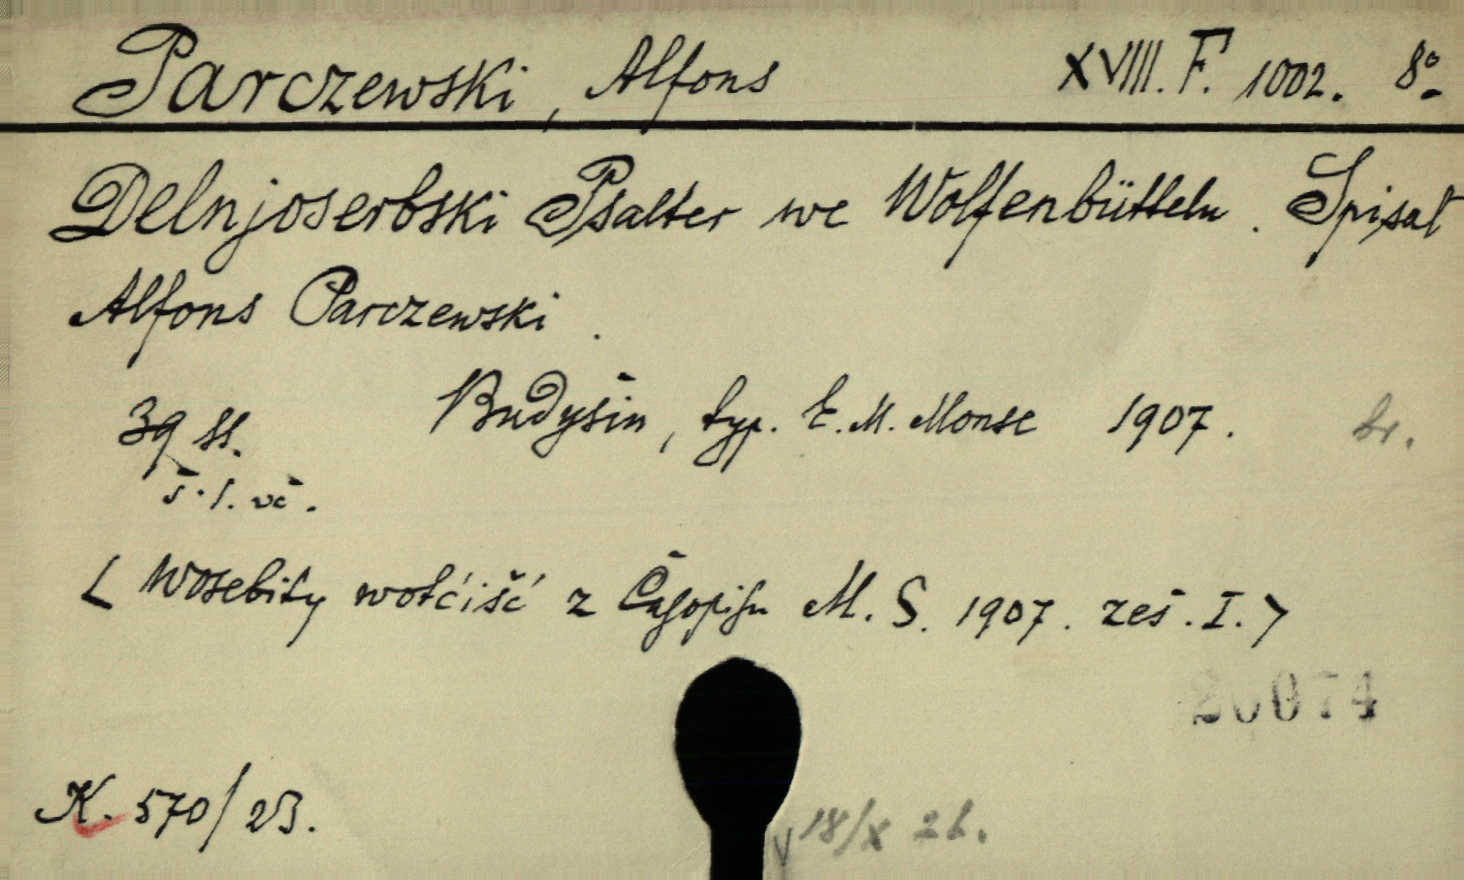 Parczewski, Alfons XVIII. F. 1002. 8°
Delnjoserbski Psalter we Wolfenbüttelu. Spisał
Alfons Parczewski.
39 ss. Budyšin, typ. E. M. Monse 1907. br.
š. l. vč.
< Wosebity wotćišć z Časopisu M. S. 1907. zeš. I. >
20074
K. 570/23.
18/X 26.